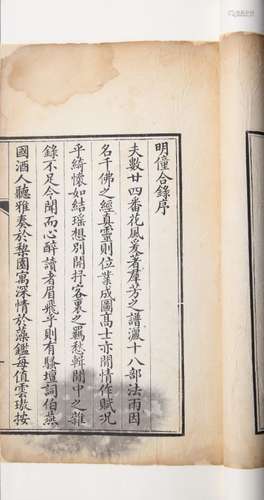 明僮合錄序
夫數廿四番花風爰著羣芳之譜灑十八部法雨因
名千佛之經真靈則位業成圖高士亦閒情作賦況
乎綺懷如結瑤想別開抒客裏之羇愁輯閒中之雜
錄不足令聞而心醉讀者眉飛乎則有騷壇詞伯燕
國酒人聽雅奏於梨園寓深情於藻鑑每值雲璈按